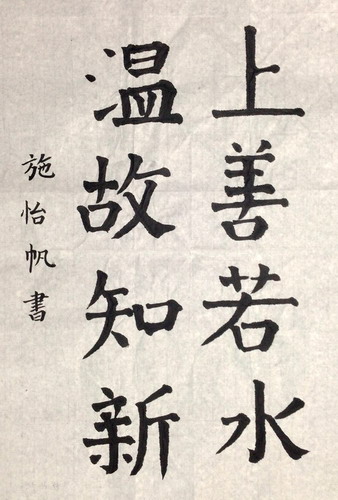 上善若水
温故知新
施怡帆書